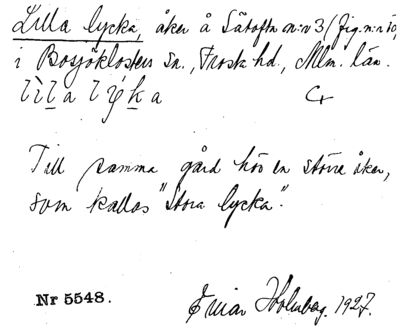 Lilla lycka, åker å Sätofta n:r 3 (fig. n:r 80,
i Bosjöklosters sn., Frosta hd., Mlm. län.
Till samma gård hör en större åker,
som kallas "Stora lycka".
Nr 5548.
Einar Holmberg. 1927.